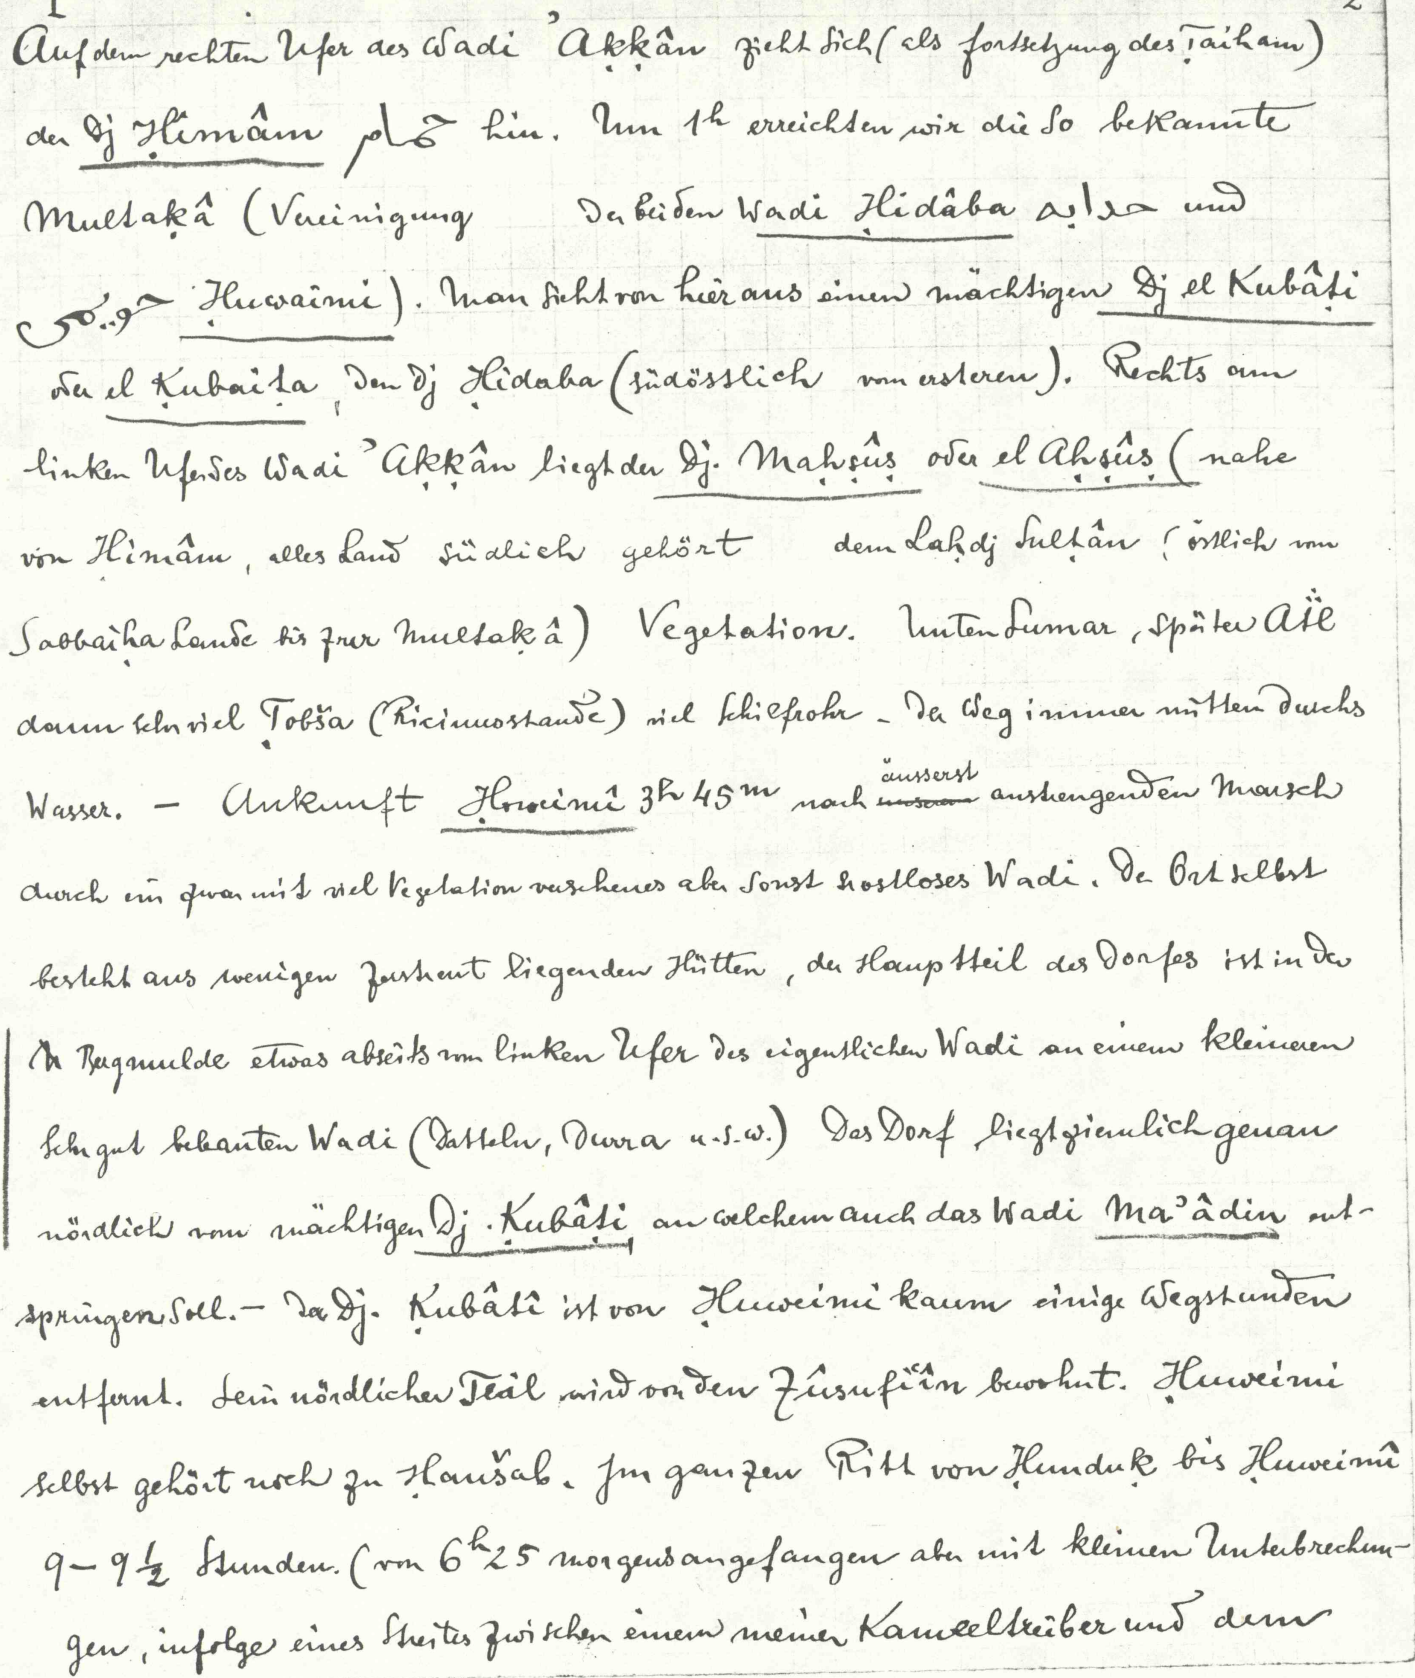 Auf dem rechten Ufer des Wadi ʾAḳḳân zieht sich (als fortsetzung des Ṭaiham)
der Dj Ḥimâm حمام hin. Um 1h erreichten wir die so bekannte
Multaḳâ (Vereinigung der beiden Wadi Ḥidâba حدابه und
حويمى Ḥuwaimi). Man sieht von hier aus einen mächtigen Dj el Kubâṭi
oder el Ḳubaiṭa, den Dj Ḥidaba (südösstlich vom ersteren). Rechts am
linken Ufer des Wadi ʾAḳḳân liegt der Dj. Maḥṣûṣ oder el Aḥṣûṣ (nahe
von Ḥimâm, alles Land südlich gehört dem Laḥdj Sulṭân (östlich vom
Sobbaiḥa Lande bis zur Multaḳâ) Vegetation. Unten Sumar, später Aṯl
dann sehr viel Ṭobša (Ricinusstaude) viel Schilfrohr – Der Weg immer mitten durchs
Wasser. – Ankunft Ḥoweimî 3h 45m nach äusserst anstrengenden Marsch
durch ein zwar mit viel Vegetation versehenes aber sonst trostloses Wadi. Der Ort selbst
besteht aus wenigen zerstreut liegenden Hütten, der Hauptteil des Dorfes ist in der
Bergmulde etwas abseits vom linken Ufer des eigentlichen Wadi an einem kleineren
sehr gut bebauten Wadi (Datteln, Durra u.s.w.) Das Dorf liegt ziemlich genau
nördlich vom mächtigen Dj. Ḳubâṭi, an welchem auch das Wadi Maʾâdin ent-
springen soll. – Der Dj. Ḳubâtî ist von Ḥuweimi kaum einige Wegstunden
entfernt. Sein nördlicher Teil wird von den Zûsufîʿîn bewohnt. Ḥuweimi
selbst gehört noch zu Ḥaušab. Im ganzen Ritt von Ḥunduḳ bis Ḥuweimî
9 – 9 ½ Stunden. (von 6h 25 morgens angefangen aber mit kleinen Unterbrechun-
gen, infolge eines Streites zwischen einem meiner Kameeltreiber und dem